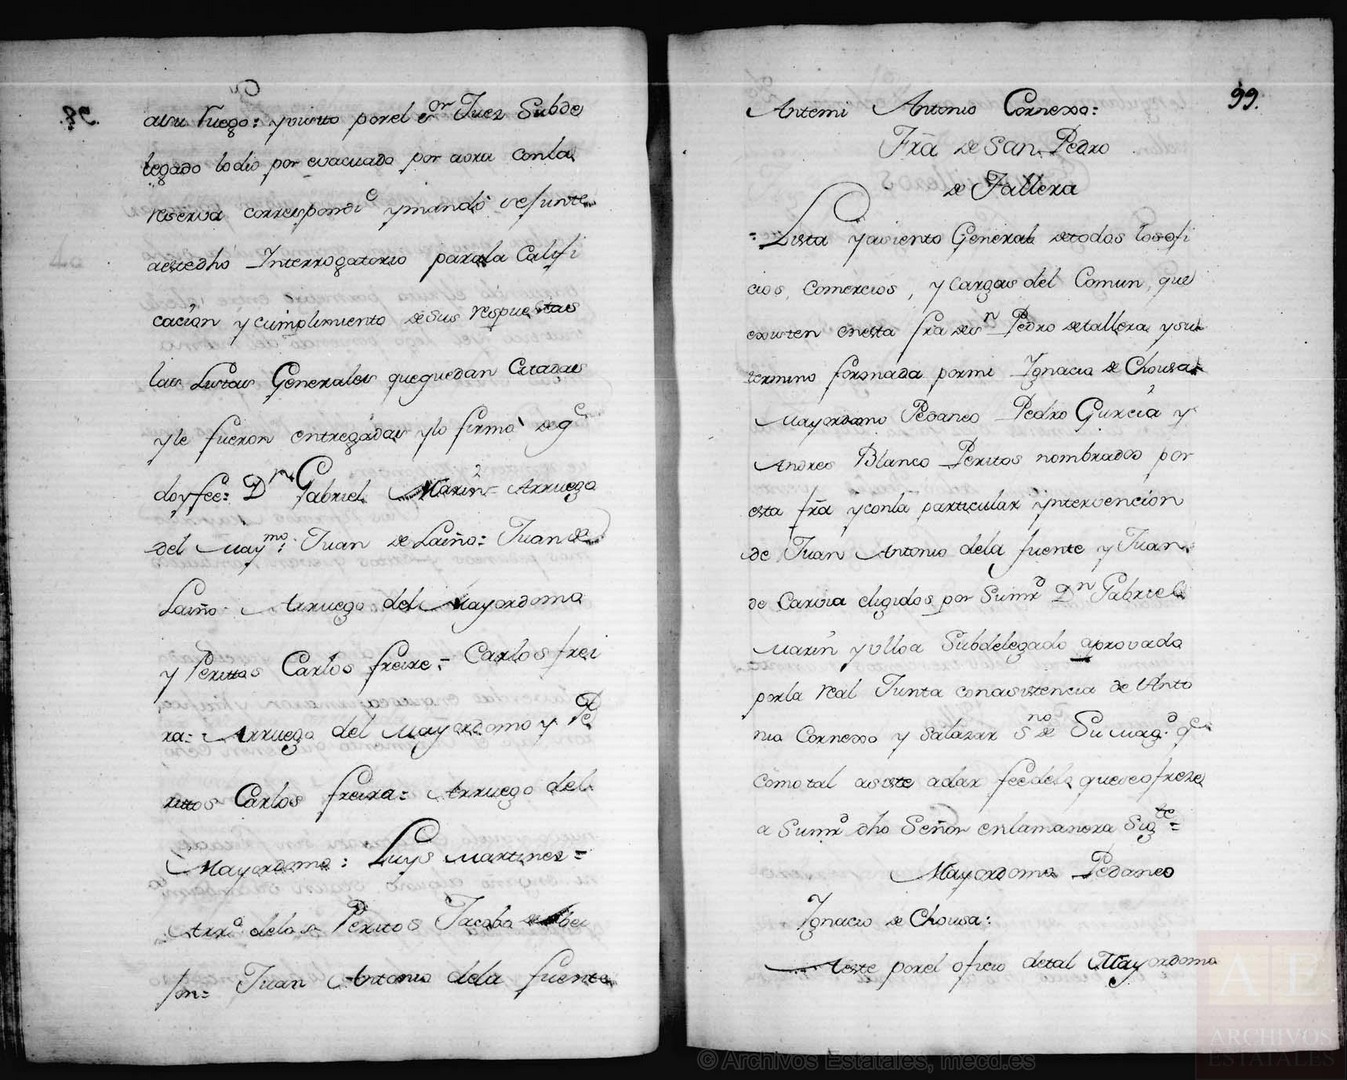 98.
asu Ruego: yvisto porel Sor Juez Subde
legado lodio por evacuado por aora conla
reserva correspondte ymandó sejunte
aestedho Interrogatorio parala Califi
cacion y cumplimiento desus respuestas
las Listas Generales quequedan Citadas
yle fueron entregadas ylo firmó deqe
doyfee: Dn Gabriel Marin= Arruego
del Maymo: Juan de Laiño= Juan de
Laiño= Arruego del Mayordomo
y Peritos Carlos freire= Carlos frei
ra= Arruego del Mayordomo y Pe
ritos Carlos freira= Arruego del
Mayordomo: Luys Martinez=
Arro delos Peritos Jacobo de
fon= Juan Antonio dela fuente
99.
Antemi Antonio Cornexo:
Fra de San Pedro
de Tallera
=Lista yasiento General detodos losofi
cios, Comercios, y Cargas del Comun, que
existen enesta fra desn Pedro detallera, ysu
termino foronada pormi Ignacio de Chousa
Mayordomo Pedaneo Pedro Garcia y
Andres Blanco Peritos nombrados por
esta fra yconla particular yntervencion
de Juan Antonio dela fuente y Juan
de Caroia eligidos por Sumrd Dn Gabriel
Marin yulloa Subdelegado aprovado
porla real Junta conasistencia de Anto
nio Cornexo y Salazar Sno de Su Magd qe
como tal asiste adar feedelo queseofreze
a Sumrd dho Señor enlamanera Sigte=
Mayordomo Pedaneo
Ignacio de Chousa:
Aeste porel oficio detal Mayordomo
AE
ARCHIVOS
ESTATALES
© Archivos Estatales, mecd.es